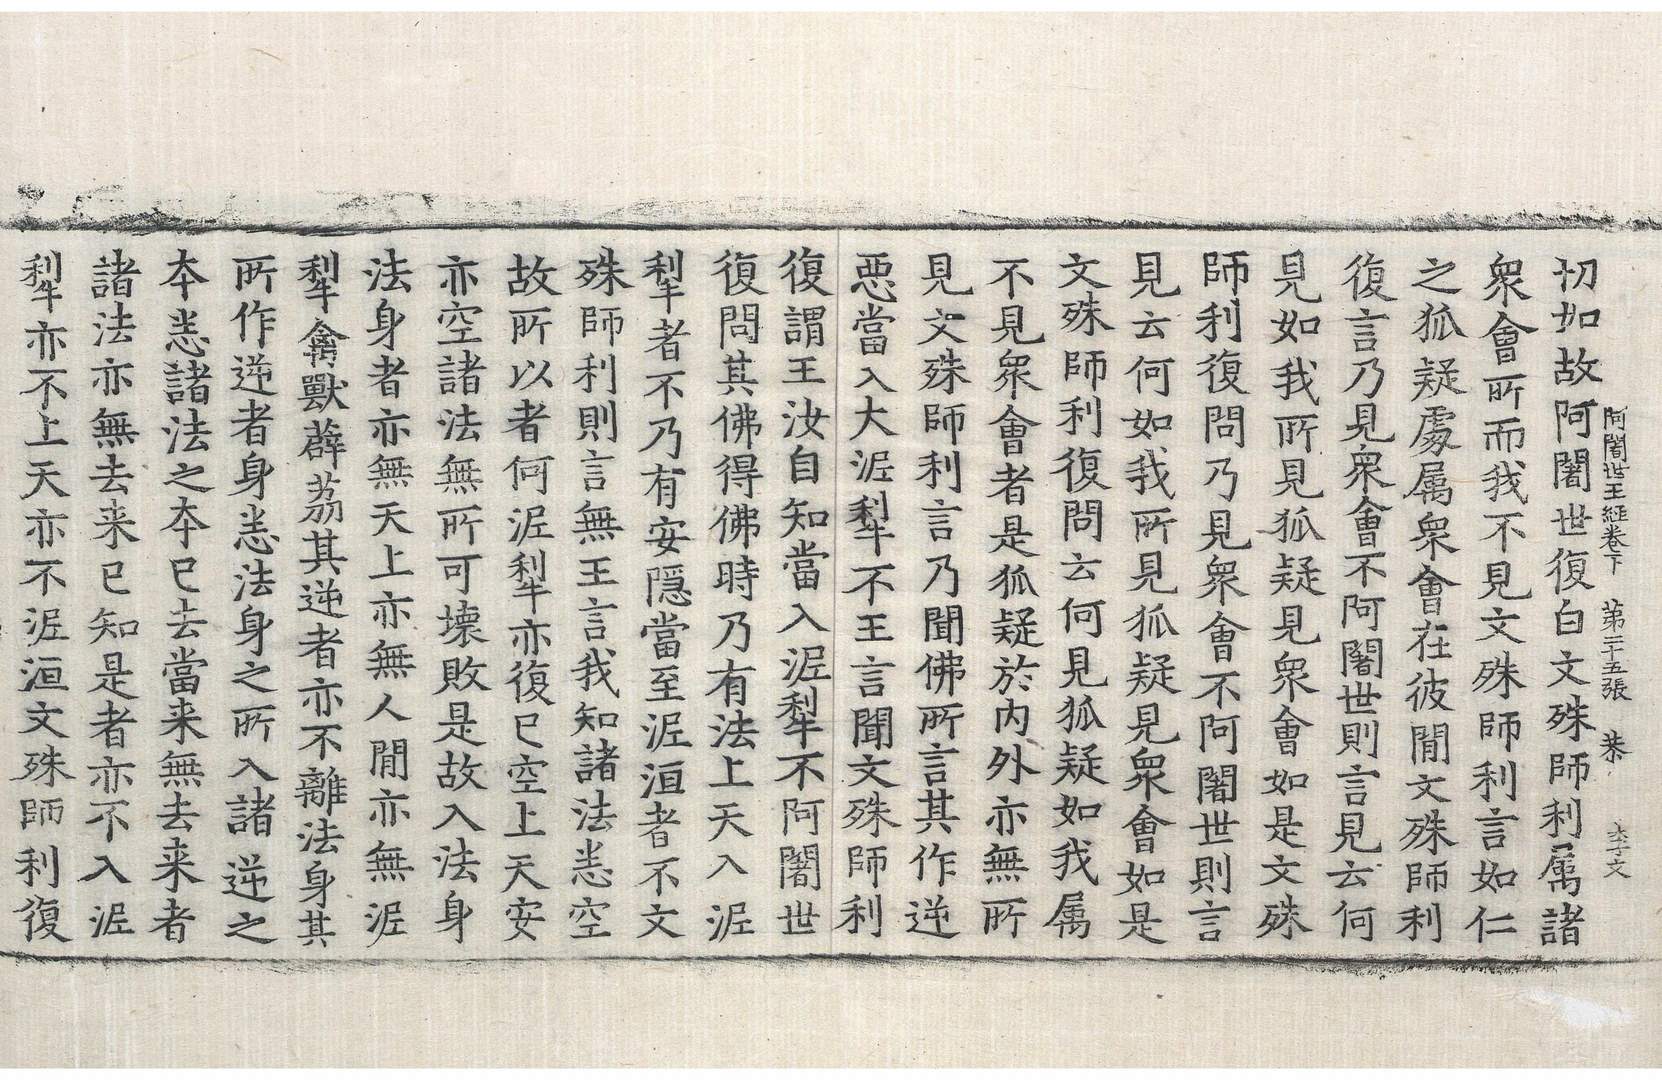 阿闍世王經卷下　第二十五張　恭　李文
切如故阿闍世復白文殊師利属諸
衆會所而我不見文殊師利言如仁
之狐疑處属衆會在彼閒文殊師利
復言乃見衆會不阿闍世則言見云何
見如我所見狐疑見衆會如是文殊
師利復問乃見衆會不阿闍世則言
見云何如我所見狐疑見衆會如是
文殊師利復問云何見狐疑如我属
不見衆會者是狐疑於内外亦無所
見文殊師利言乃聞佛所言其作逆
惡當入大泥犁不王言聞文殊師利
復謂王汝自知當入泥犁不阿闍世
復問其佛得佛時乃有法上天入泥
犁者不乃有安隱當至泥洹者不文
殊師利則言無王言我知諸法悉空
故所以者何泥犁亦復已空上天安
亦空諸法無所可壊敗是故入法身
法身者亦無天上亦無人閒亦無泥
犁禽獸薜荔其逆者亦不離法身其
所作逆者身悉法身之所入諸逆之
本悉諸法之本已去當来無去来者
諸法亦無去来已知是者亦不入泥
犁亦不上天亦不泥洹文殊師利復